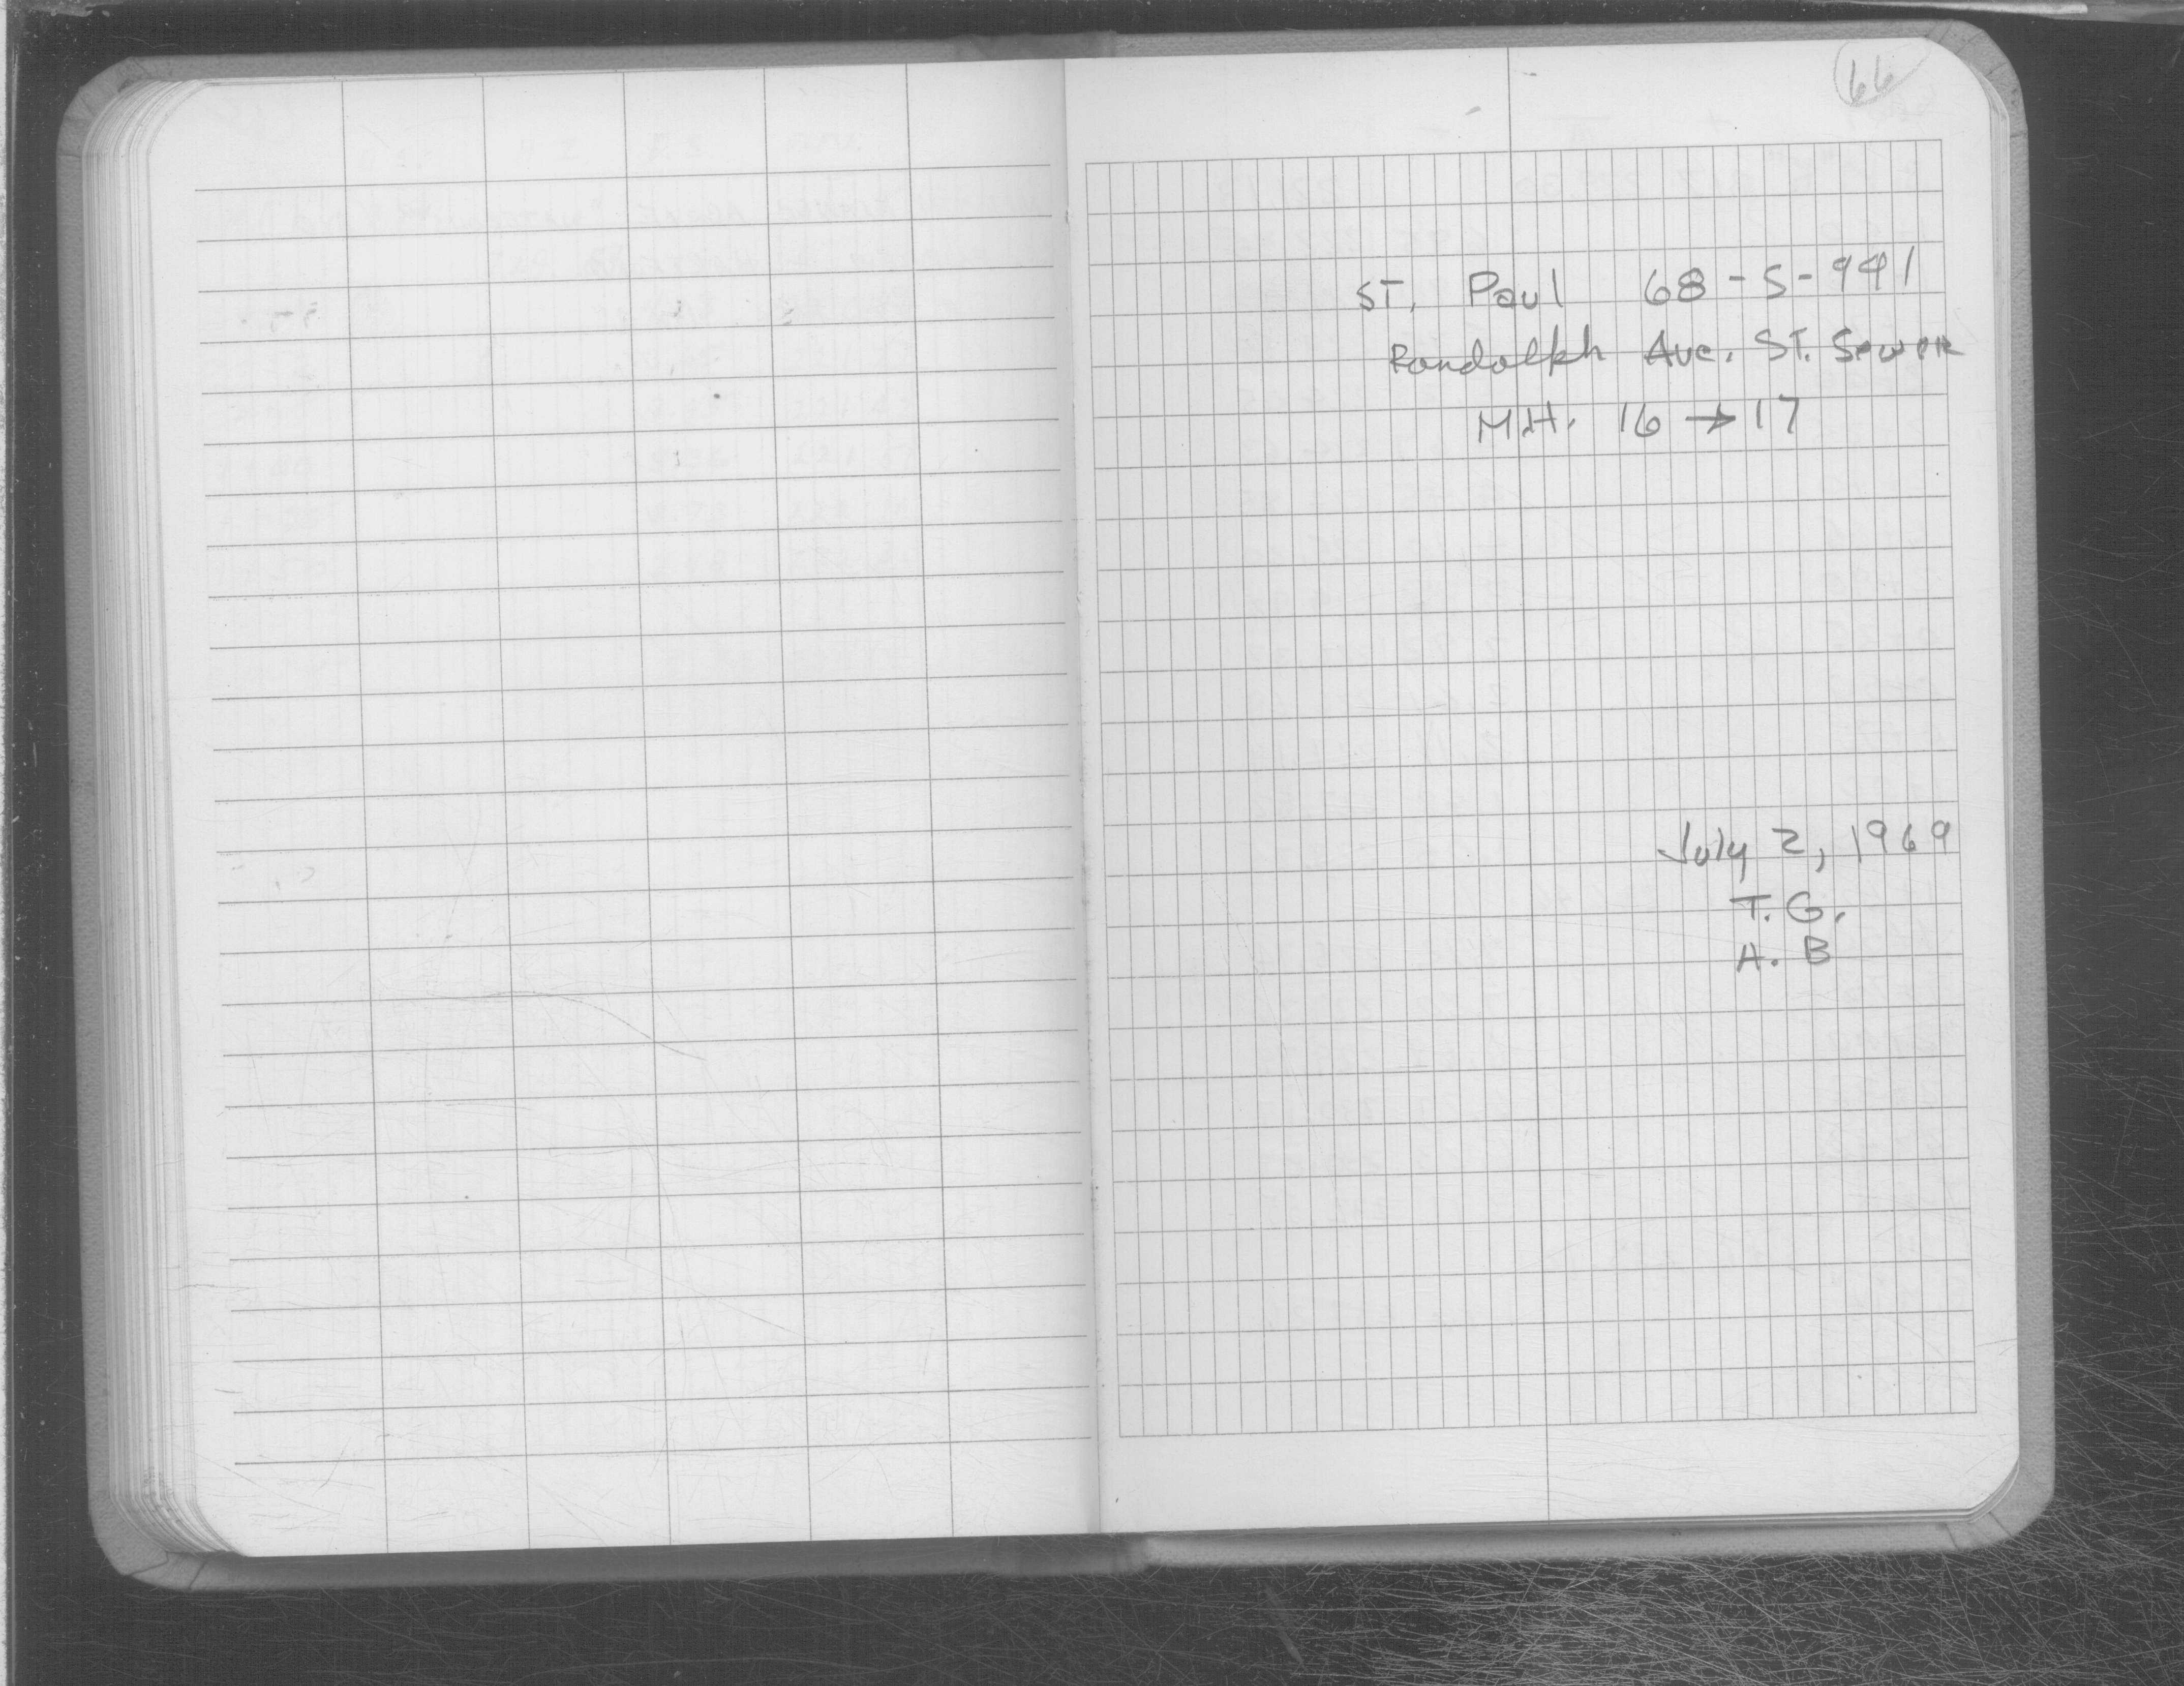 66
ST. Paul 68-S-941
Randolph Ave. ST. Sewer
M.H. 16 → 17
July 2, 1969
T.G.
A. B